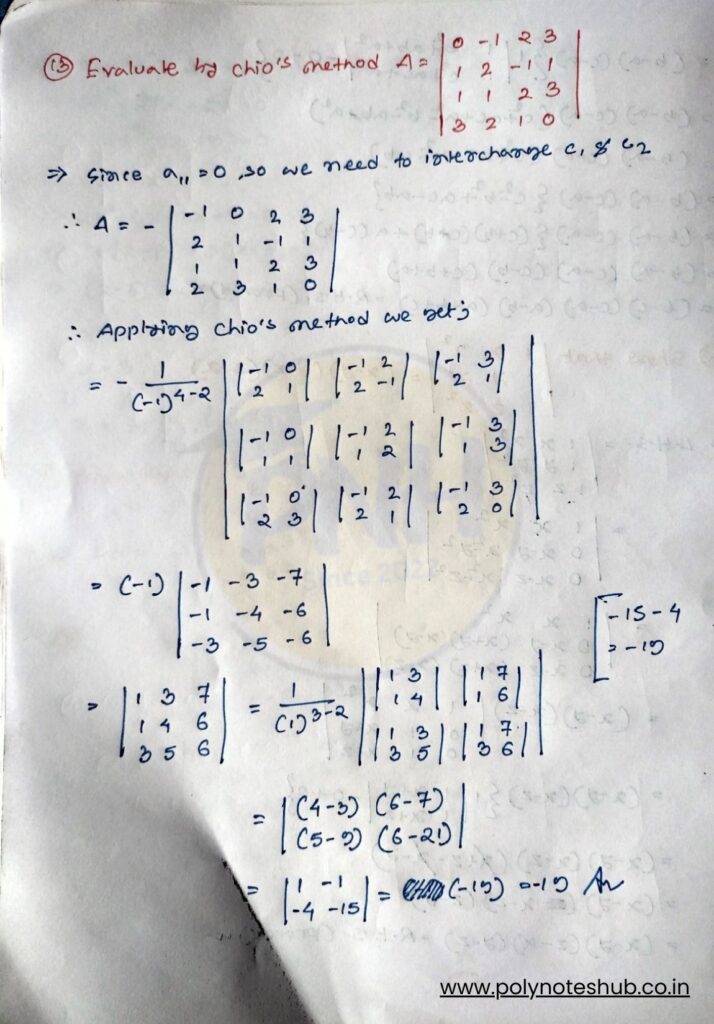 (13) Evaluate by chio's method A = | 0 -1 2 3 |
| 1 2 -1 1 |
| 1 1 2 3 |
| 3 2 1 0 |
⇒ Since a₁₁ = 0, so we need to interchange c₁ & c₂
∴ A = - | -1 0 2 3 |
| 2 1 -1 1 |
| 1 1 2 3 |
| 2 3 1 0 |
∴ Applying chio's method we get;
= - 1/(-1)^4-2 | |-1 0| |-1 2| |-1 3|
|2 1| |2 -1| |2 1|
|-1 0| |-1 2| |-1 3|
|1 1| |1 2| |1 3|
|-1 0| |-1 2| |-1 3|
|2 3| |2 1| |2 0| |
PNH
Since 2022
= (-1) | -1 -3 -7 |
| -1 -4 -6 |
| -3 -5 -6 |
[ -15 - 4
= -19
= | 1 3 7 | = 1/(1)^3-2 | |1 3| |1 7|
| 1 4 6 | |1 4| |1 6|
| 3 5 6 | |1 3| |1 7|
|3 5| |3 6| |
= | (4-3) (6-7) |
| (5-9) (6-21) |
= | 1 -1 | = (-19) = -19 An
| -4 -15 |
www.polynoteshub.co.in